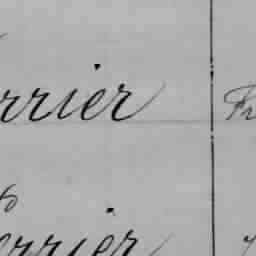 rrier Fr
errier